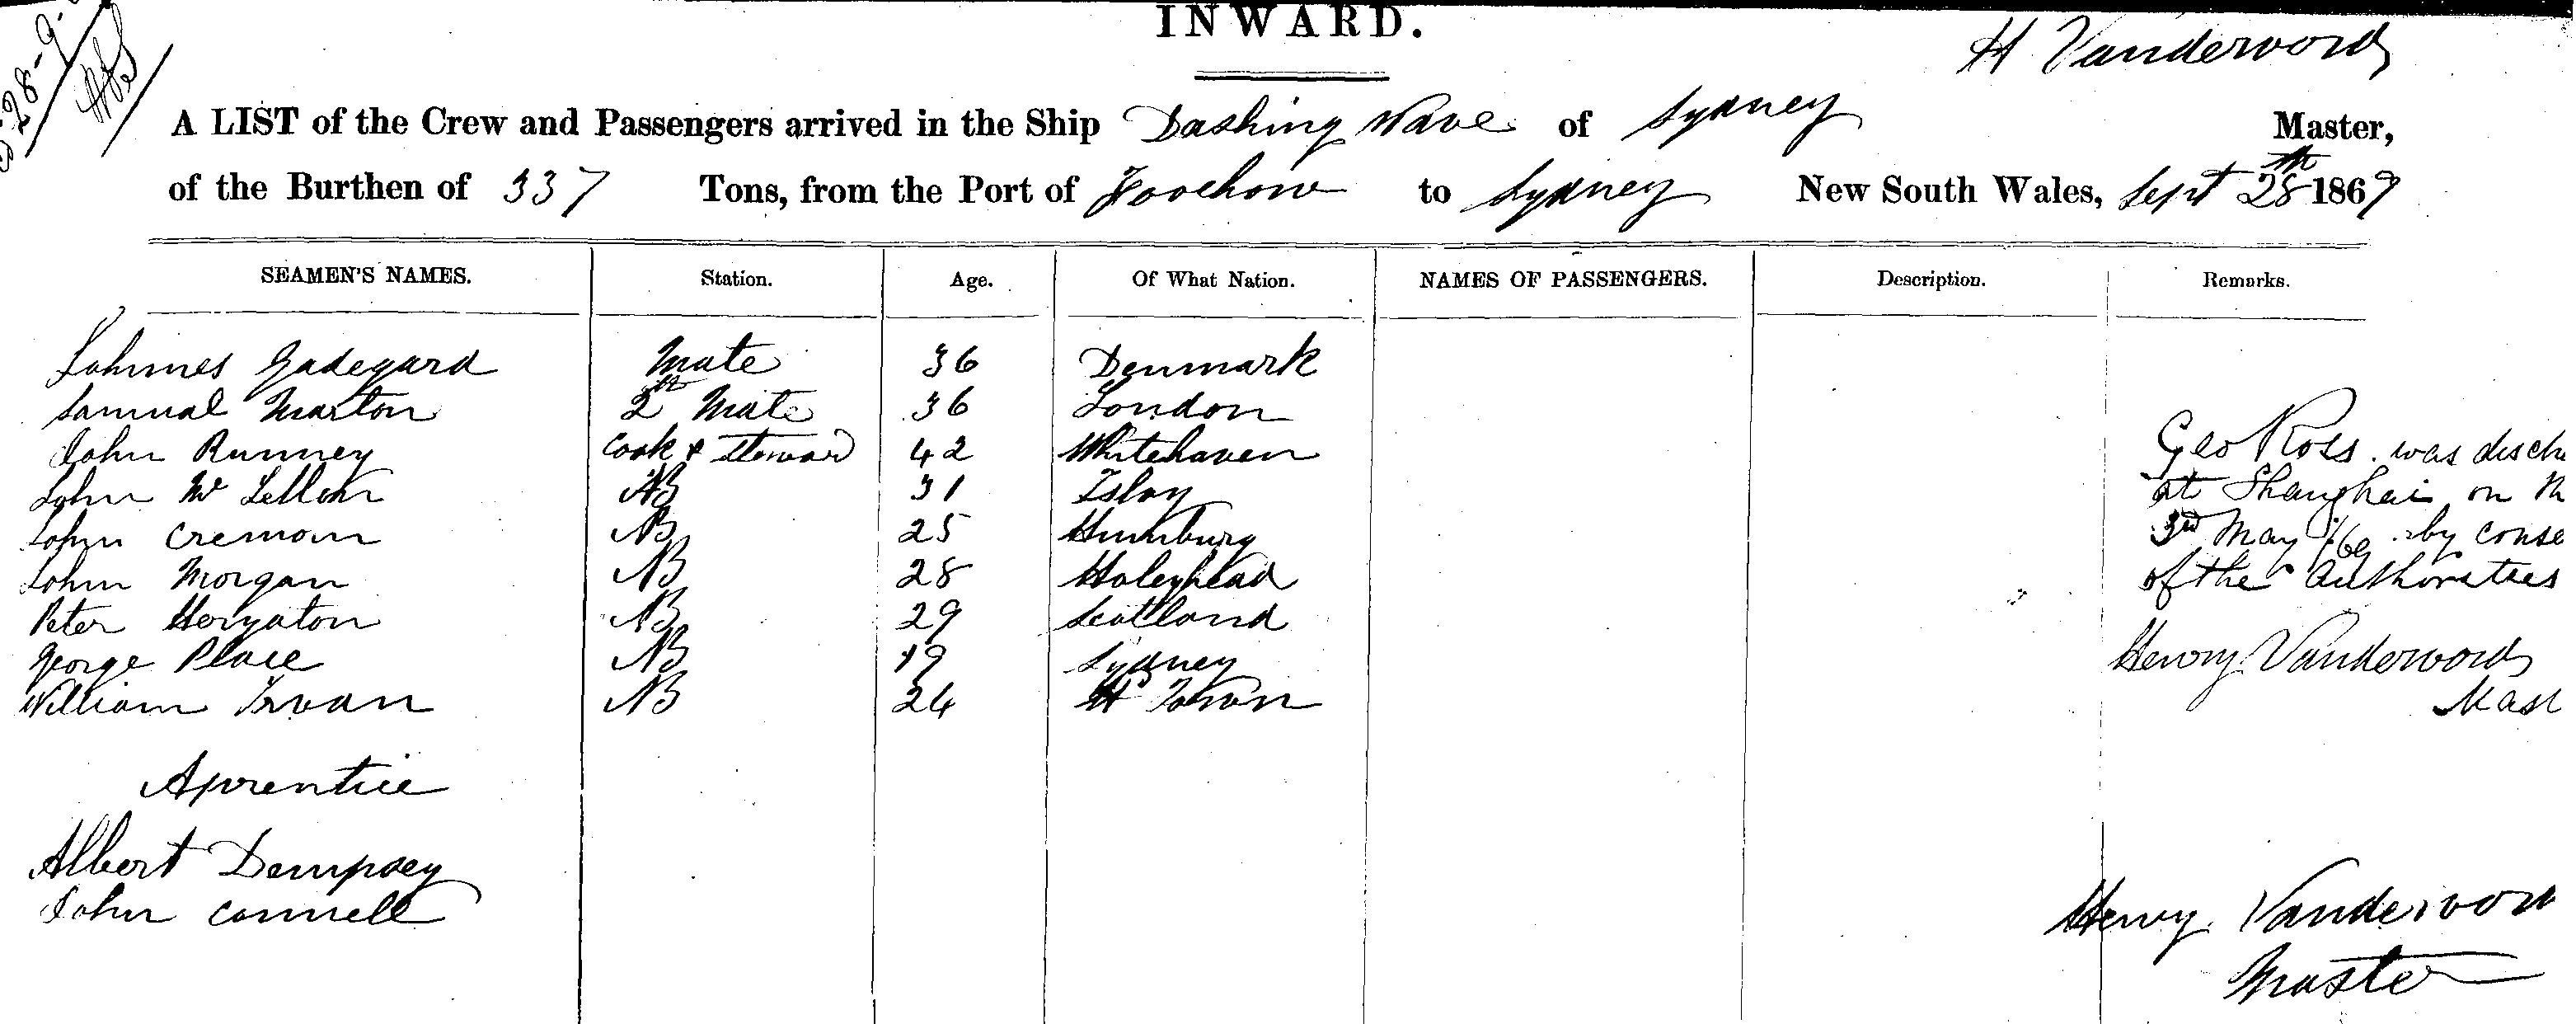 INWARD.
H Vandervord
A LIST of the Crew and Passengers arrived in the Ship Dashing Wave of Sydney Master,
of the Burthen of 337 Tons, from the Port of Foochow to Sydney New South Wales, Sept 28th 1869
SEAMEN'S NAMES. Station. Age. Of What Nation. NAMES OF PASSENGERS. Description. Remarks.
Johnnes Gadegard Mate 36 Denmark
Samual Marton 2nd Mate 36 London
John Runney Cook & Steward 42 Whitehaven
John Mc Lellan AB 31 Islay
John Cremoin AB 25 Humburg
John Morgan AB 28 Holeyhead
Peter Heryaton AB 29 Scotland
George Place AB 19 Sydney
William Irvan AB 24 H Town
Geo Ross was disch
at Shanghai on th
3rd May /69 by conse
of the Authorities
Henry Vandervord
Mast
Aprentice
Albert Dempsey
John Connell
Henry Vandervord
Master